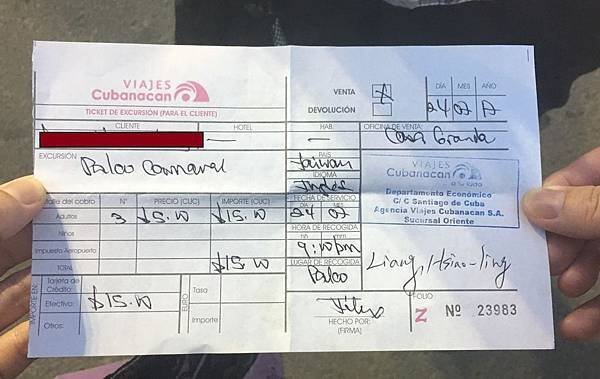 VIAJES
Cubanacan
TICKET DE EXCURSIÓN (PARA EL CLIENTE)
VENTA
DEVOLUCIÓN
DÍA MES AÑO
24 07 17
CLIENTE HOTEL HAB. OFICINA DE VENTA:
Casa Granda
EXCURSIÓN
Palco Carnaval
PAÍS
Taiwan
IDIOMA
Inglés
FECHA DE SERVICIO
DÍA
24 07
HORA DE RECOGIDA
hh mm
9:10 pm
LUGAR DE RECOGIDA
Palco
HECHO POR:
(FIRMA)
VIAJES
Cubanacan
a tu lado
Departamento Económico
C/ C Santiago de Cuba
Agencia Viajes Cubanacan S.A.
Sucursal Oriente
Liang, Hsiao-ling
FOLIO
Z Nº 23983
Detalle del cobro Nº PRECIO (CUC) IMPORTE (CUC)
Adultos 3 $5.00 $15.00
Niños
Impuesto Aeropuerto
TOTAL $15.00
IMPORTE EN:
Tarjeta de Crédito:
Efectivo: $15.00
Otros:
EURO
Tasa
Importe